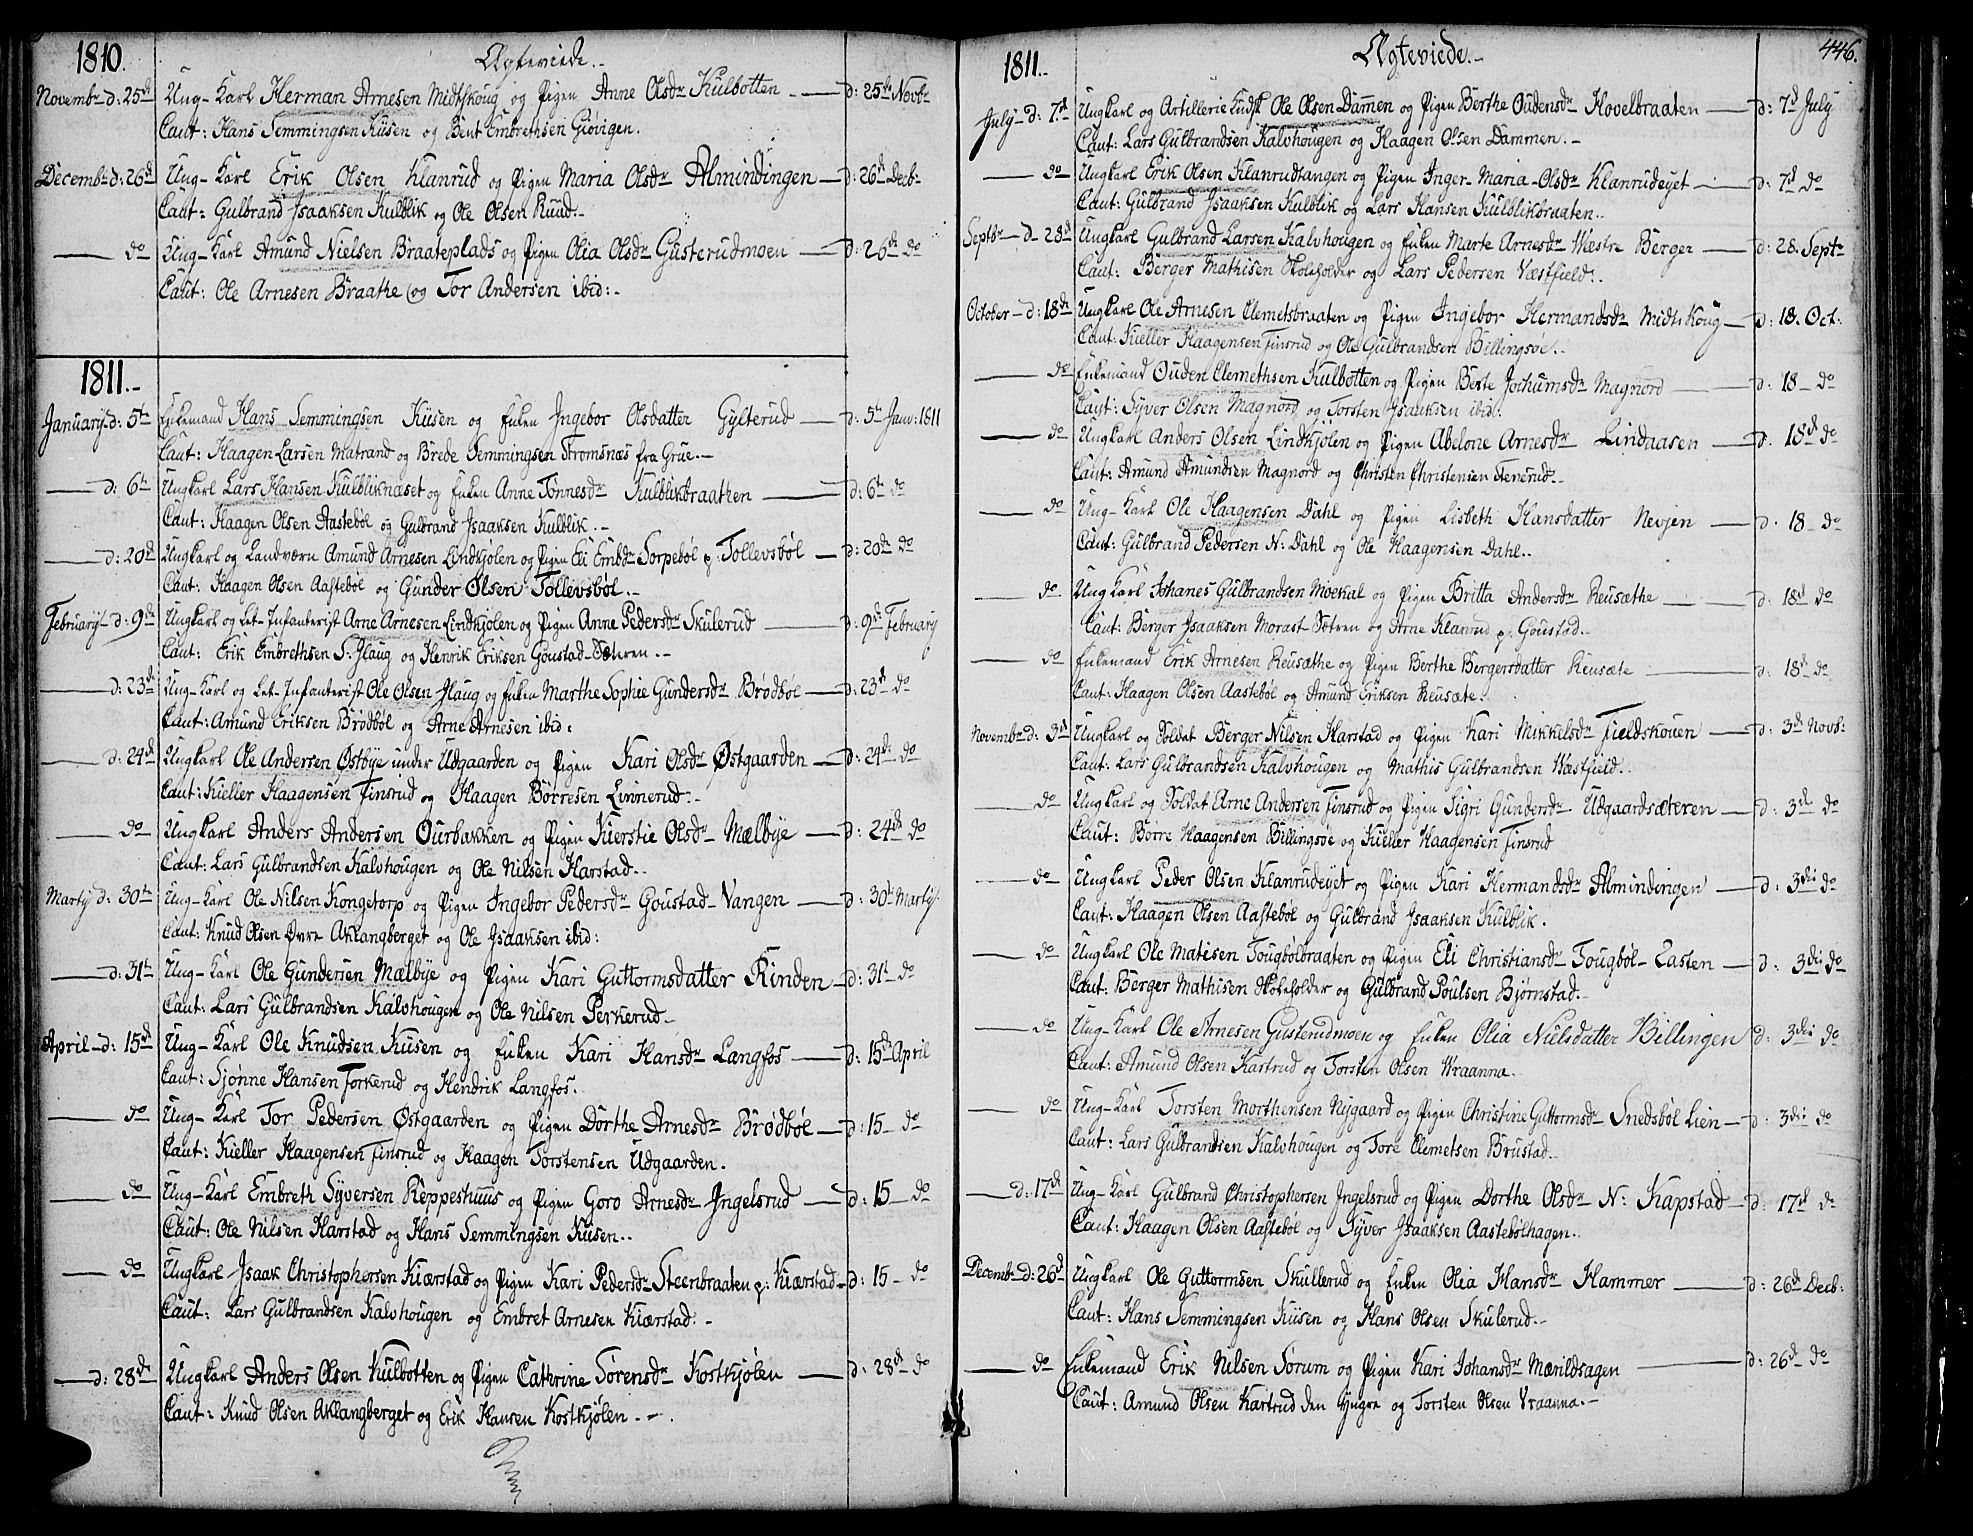 1810. Ægteviede.-
Novembr d: 25de Ung-Karl Herman Arnesen Midtskoug og Pigen Anne Olsdr Kulbotten - d: 25de Novbr
Caut: Hans Semmingsen Kiisen og Bent Embrethsen Giövigen.
Decembr d: 26d Ung-Karl Erik Olsen Klanrud og Pigen Maria Olsdr Almindingen - d: 26d Decb:
Caut: Gulbrand Isaaksen Kulblik og Ole Olsen Ruud.-
do Ung-Karl Amund Nielsen Braateplads og Pigen Olia Olsdr Gusterudmoen - d: 26d do
Caut: Ole Arnesen Braathe og Tor Andersen ibid:-
1811.-
Januarij d: 5te Enkemand Hans Semmingsen Kiisen og Enken Ingebor Olsdatter Gylterud - d: 5te Janv: 1811
Caut: Haagen Larsen Matrand og Brede Semmingsen Stromsnæs fra Grue.-
d: 6te Ungkarl Lars Hansen Kulbliknæset og Enken Anne Tönnesdr Kulblikbraathen - d: 6te do
Caut: Haagen Olsen Aasteböl og Gulbrand Isaaksen Kulblik.-
d: 20d Ungkarl og Landværn Amund Arnesen Lindkjölen og Pigen Eli Embdr Sorpeböl p: Tollevsböl - d: 20de do
Caut: Haagen Olsen Aasteböl og Gunder Olsen Tollevsböl.-
Februarij d: 9de Ungkarl og Let-Infanterist Arne Arnesen Lindkjölen og Pigen Anne Pedersdr Skulerud - d: 9de Februarij
Caut: Erik Embrethsen S: Ilaug og Henrik Eriksen Goustad-Sæteren.-
d: 23de Ung-Karl og Let-Infanterist Ole Olsen Ilaug og Enken Marthe Sophie Gundersdr Brödböl - d: 23d do
Caut: Amund Eriksen Brödböl og Arne Arnesen ibid:
d: 24de Ungkarl Ole Andersen Østbye under Udgaarden og Pigen Kari Olsdr Østgaarden - d: 24de do
Caut: Kieller Haagensen Finsrud og Haagen Börresen Linnerud.-
do Ungkarl Anders Andersen Ourbakken og Pigen Kierstie Olsdr Mælbye - d: 24de do
Caut: Lars Gulbrandsen Kalvhougen og Ole Nilsen Harstad.-
Martij d: 30te Ung-Karl Ole Nilsen Kongetorp og Pigen Ingebor Pedersdr Goustad-Vangen - d: 30te Martij
Caut: Knud Olsen Øvre Aklangberget og Ole Isaaksen ibid:
d: 31te Ung-Karl Ole Gundersen Mælbye og Pigen Kari Guttormsdatter Rinden - d: 31t do
Caut: Lars Gulbrandsen Kalvhougen og Ole Nilsen Perkerud.-
April d: 15de Ung-Karl Ole Knudsen Kiisen og Enken Kari Hansdr Langfos - d: 15de April
Caut: Sjönne Hansen Torkerud og Hendrik Langfos.
do Ung-Karl Tor Pedersen Østgaarden og Pigen Dorthe Arnesdr Brödböl - d: 15 do
Caut: Kieller Haagensen Finsrud og Haagen Torstensen Udgaarden.
do Ung-Karl Embreth Syversen Keppeshuus og Pigen Goro Arnesdr Ingelsrud - d: 15 do
Caut: Ole Nilsen Harstad og Hans Semmingsen Kiisen.-
do Ungkarl Isaak Christophersen Kiærstad og Pigen Kari Pedersdr Steenbraaten p: Kiærstad - d: 15 do
Caut: Lars Gulbrandsen Kalvhougen og Embret Arnesen Kiærstad.-
d: 28de Ungkarl Anders Olsen Kulbotten og Pigen Cathrine Sörensdr Kostkjölen - d: 28d do
Caut: Knud Olsen Aklangberget og Erik Hansen Kostkjölen.-
1811.- Ægteviede.- 446.
July d: 7d Ungkarl og Artillerie Kudsk Ole Olsen Dammen og Pigen Berthe Oudensdr Hovelbraaten - d: 7d July
Caut: Lars Gulbrandsen Kalvhougen og Haagen Olsen Dammen.-
do Ungkarl Erik Olsen Klanrudtangen og Pigen Inger-Maria-Olsdr Klanrudeyet - d: 7d do
Caut: Gulbrand Isaaksen Kulblik og Lars Hansen Kulblikbraaten.-
Septbr d- 28d Ungkarl Gulbrand Larsen Kalvhougen og Enken Marte Arnesdr Wæstre Berger - d: 28. Septr
Caut: Berger Mathisen Skoleholder og Lars Pedersen Væstfield.-
October d: 18de Ungkarl Ole Arnesen Clemetsbraaten og Pigen Ingebor Hermandsdr Midtskoug - d: 18. Oct:
Caut: Kieller Haagensen Finsrud og Ole Gulbrandsen Billingsöe.-
do Enkemand Ouden Clemethsen Kulbotten og Pigen Berte Jochumsdr Magnord - d: 18 do
Caut: Syver Olsen Magnord og Torsten Isaaksen ibid:
do Ungkarl Anders Olsen Lindkjölen og Pigen Abelone Arnesdr Lindaasen - d. 18d do
Caut: Amund Amundsen Magnord og Christen Christensen Stenerud.-
do Ung-Karl Ole Haagensen Dahl og Pigen Lisbeth Hansdatter Nevjen - d. 18 do
Caut: Gulbrand Pedersen N: Dahl og Ole Haagensen Dahl.-
do Ungkarl Johanes Gulbrandsen Moekal og Pigen Britta Andersdr Reusæthe - d: 18d do
Caut: Berger Isaaksen Morast-Sætren og Arne Klanrud p: Goustad.-
do Enkemand Erik Arnesen Reusæthe og Pigen Berthe Bergersdatter Reusæte - d: 18d do
Caut: Haagen Olsen Aasteböl og Amund Eriksen Reusæte.
Novembr d: 3d Ungkarl og Soldat Berger Nilsen Harstad og Pigen Kari Mikkelsdr Fieldskouen - d: 3de Novb:
Caut: Lars Gulbrandsen Kalvhougen og Mathis Gulbrandsen Wæstfield.-
do Ungkarl og Soldat Arne Andersen Finsrud og Pigen Sigri Gundersdr Udgaardsæteren - d: 3de do
Caut: Börre Haagensen Billingsöe og Kieller Haagensen Finsrud
do Ungkarl Peder Olsen Klanrudeyet og Pigen Kari Hermandsdr Almindingen - d: 3die do
Caut: Haagen Olsen Aasteböl og Gulbrand Isaaksen Kulblik.
do Ungkarl Ole Matisen Tougbölbraaten og Pigen Eli Christiansdr Tougböl-Easten - d: 3die do
Caut: Berger Mathisen Skoleholder og Gulbrand Poulsen Bjørnstad.-
do Ung-Karl Ole Arnesen Gusterudmoen og Enken Olia Nielsdatter Billingen d: 3die do
Caut: Amund Olsen Kartrud og Torsten Olsen Wraanna.
do Ung-Karl Torsten Morthensen Nygaard og Pigen Christine Guttormsdr Snedsböl Lien - d: 3die do
Caut: Lars Gulbrandsen Kalvhougen og Tore Clemetsen Brustad.-
d: 17d Ung-Karl Gulbrand Christophersen Ingelsrud og Pigen Dorthe Olsdr N: Kapstad - d: 17d do
Caut: Haagen Olsen Aasteböl og Syver Isaaksen Aastebölhagen.-
Decembr d: 26d Ungkarl Ole Guttormsen Skullerud og Enken Olia Hansdr Hammer - d: 26de Decb:
Caut: Hans Semmingsen Kiisen og Hans Olsen Skulerud.-
do Enkemand Erik Nilsen Sorum og Pigen Kari Johansdr Mærildsagen - d: 26d do
Caut: Amund Olsen Kartrud den Yngre og Torsten Olsen Vraanna.-